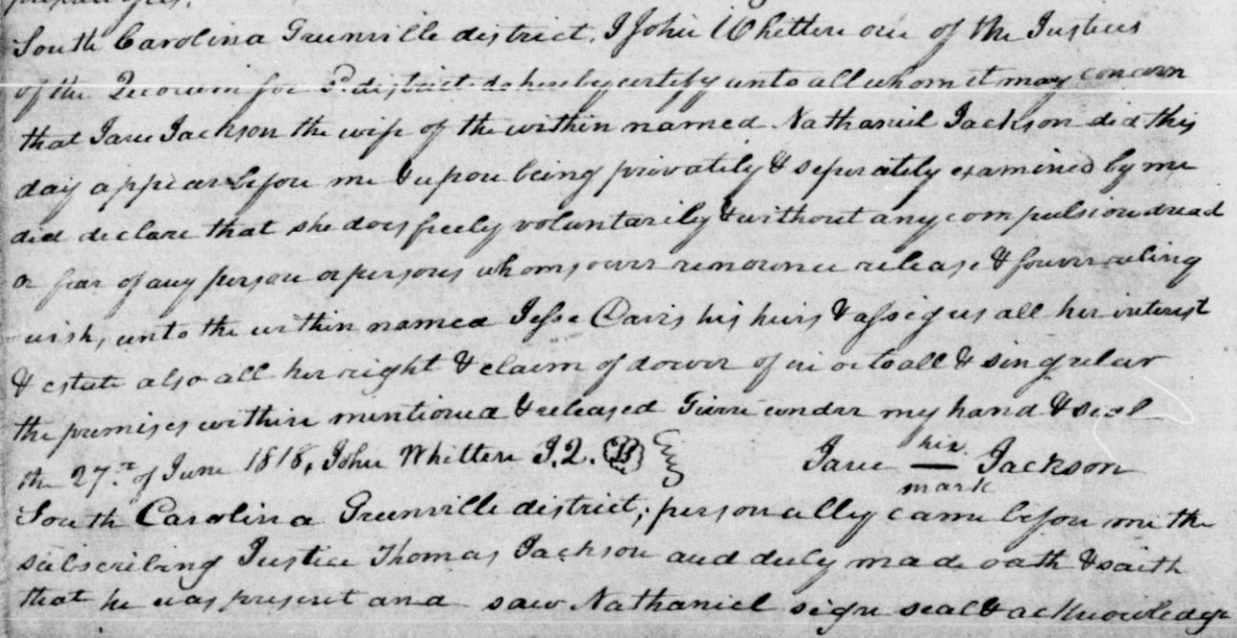 South Carolina Greenville district, I John Whitten one of the Justices
of the Quorum for Sd. district do hereby certify unto all whom it may concern
that Jane Jackson the wife of the within named Nathaniel Jackson did this
day appear before me & upon being privately & seperately examined by me
did declare that she does freely voluntarily & without any compulsion dread
or fear of any person or persons whomsoever renounce release & forever relinq
uish, unto the within named Jesse Davis his heirs & assigns all her interest
& estate also all her right & claim of dower of in or to all & singular
the premises within mentioned & released Given under my hand & seal
the 27th of June 1818, John Whitten J.Q. Jane her Jackson
mark
South Carolina Greenville district; personally came before me the
subscribing Justice Thomas Jackson and duly made oath & saith
that he was present and saw Nathaniel sign seal & acknowledge